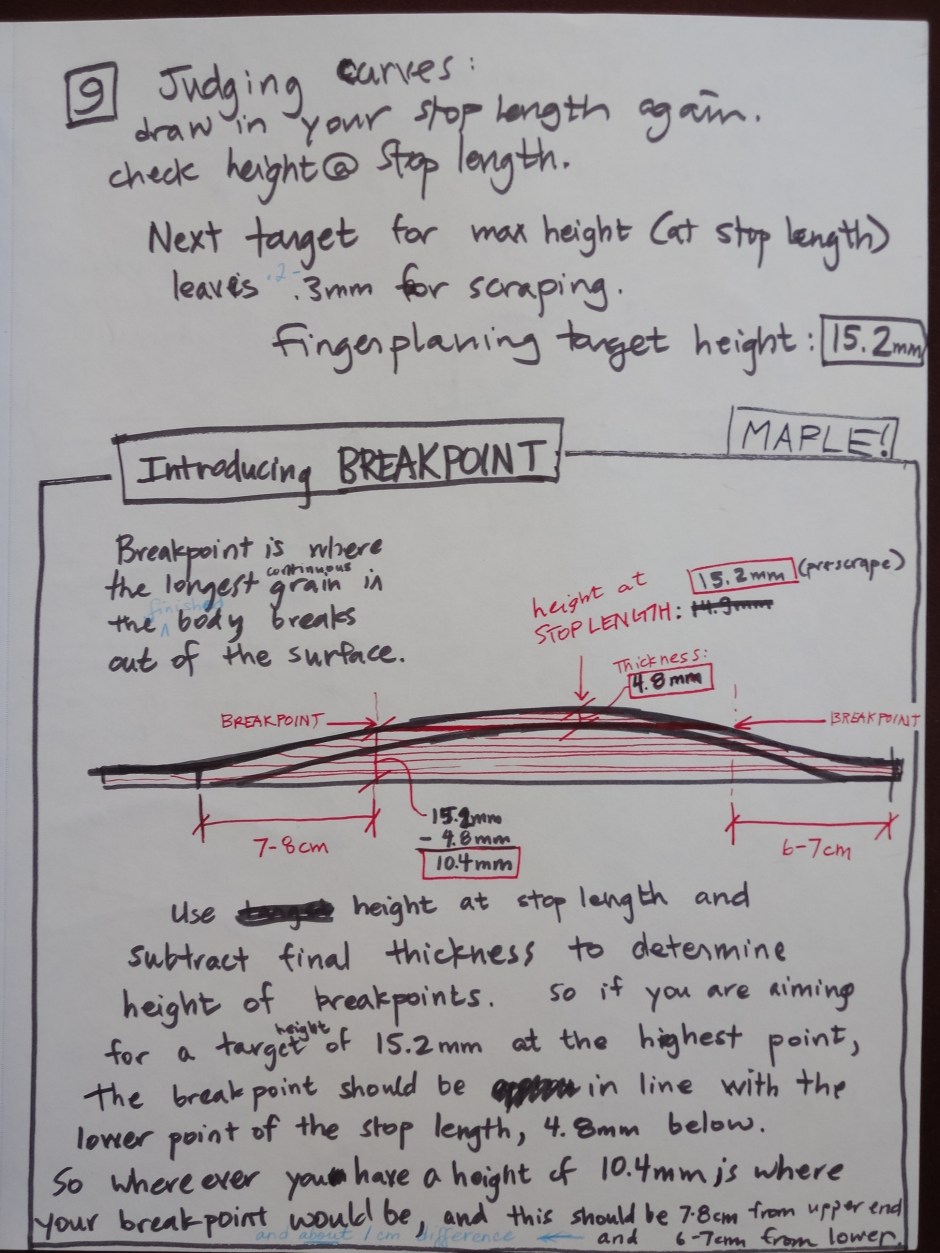 9 Judging curves:
draw in your stop length again.
check height @ stop length.
Next target for max height (at stop length)
leaves .2-.3mm for scraping.
Fingerplaning target height: 15.2mm
MAPLE!
Introducing BREAKPOINT
Breakpoint is where
the longest continuous grain in
the finished body breaks
out of the surface.
height at
STOP LENGTH: 14.9mm
15.2mm (prescrape)
Thickness:
4.8mm
BREAKPOINT
BREAKPOINT
7-8cm
15.2mm
- 4.8mm
10.4mm
6-7cm
Use height at stop length and
subtract final thickness to determine
height of breakpoints. So if you are aiming
for a target height of 15.2mm at the highest point,
the breakpoint should be in line with the
lower point of the stop length, 4.8mm below.
So where ever you have a height of 10.4mm is where
your breakpoint would be, and this should be 7-8cm from upper end
and about 1cm difference ← and 6-7cm from lower.